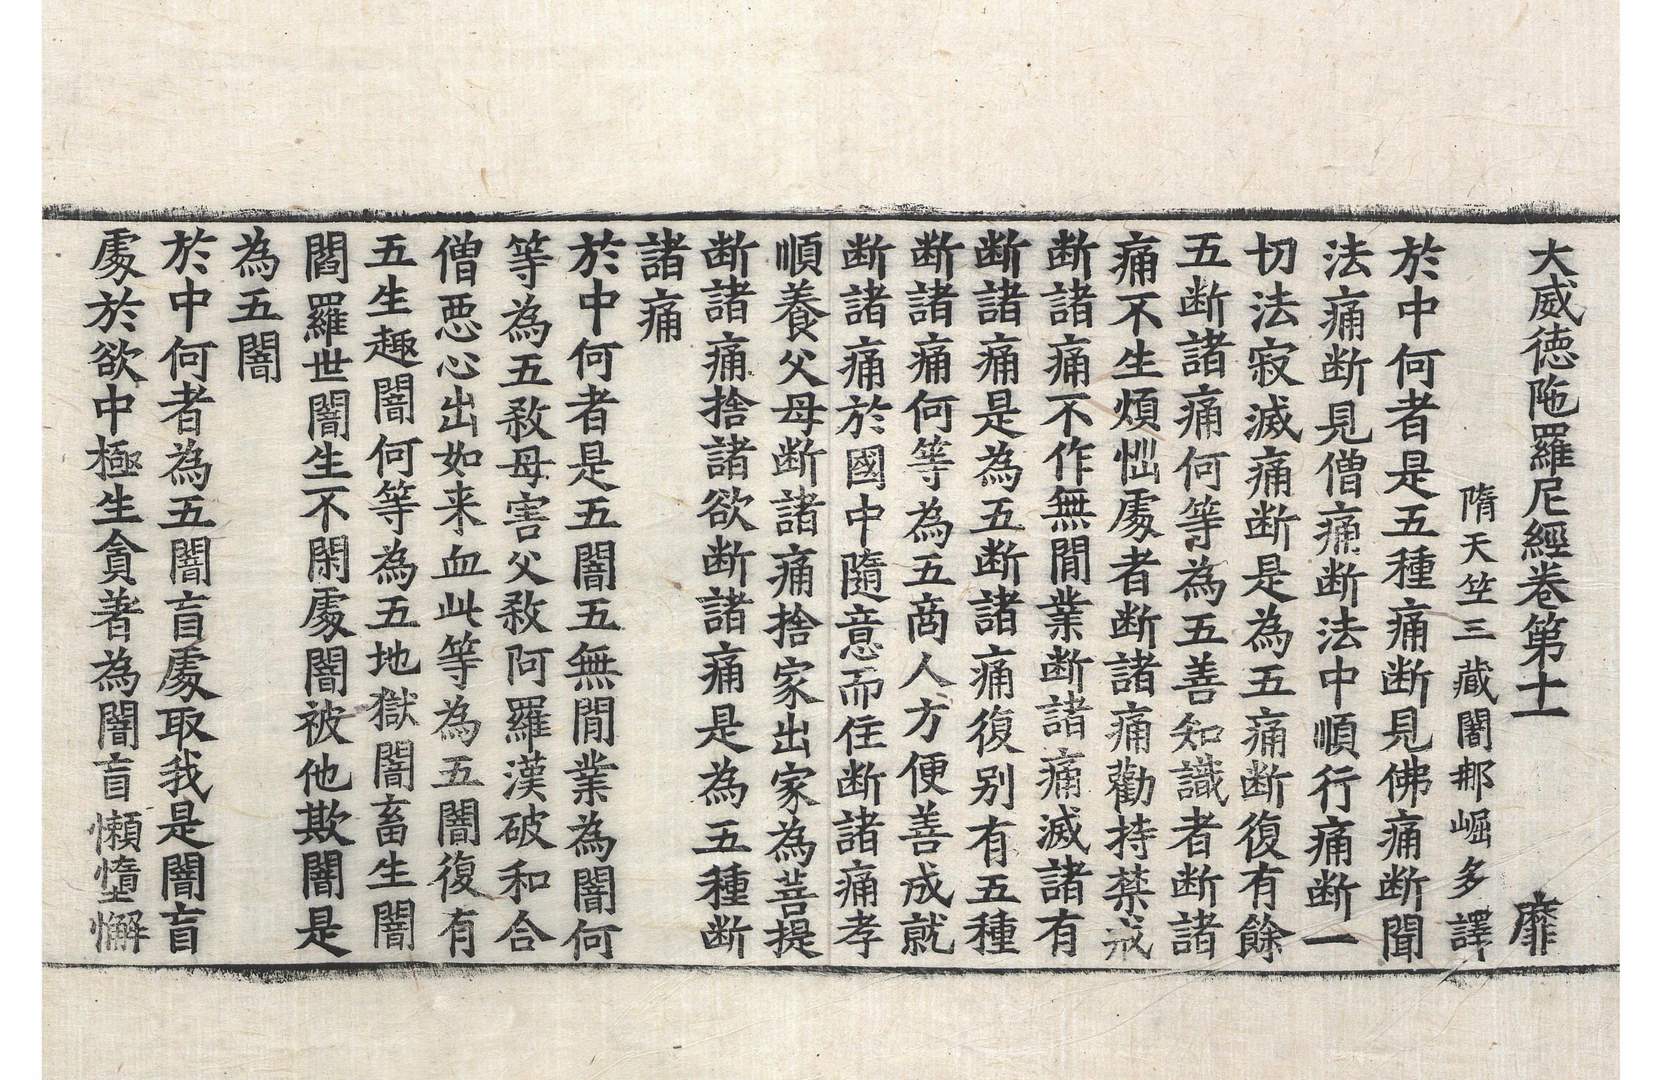 大威德陁羅尼經卷第十一 靡
隋天竺三藏闍那崛多譯
於中何者是五種痛断見佛痛断聞
法痛断見僧痛断法中順行痛断一
切法寂滅痛断是為五痛断復有餘
五断諸痛何等為五善知識者断諸
痛不生煩惱處者断諸痛勸持禁戒
断諸痛不作無間業断諸痛滅諸有
断諸痛是為五断諸痛復別有五種
断諸痛何等為五商人方便善成就
断諸痛於國中隨意而住断諸痛孝
順養父母断諸痛捨家出家為菩提
断諸痛捨諸欲断諸痛是為五種断
諸痛
於中何者是五闇五無間業為闇何
等為五敎母害父敎阿羅漢破和合
僧惡心出如来血此等為五闇復有
五生趣闇何等為五地獄闇畜生闇
閻羅世闇生不閑處闇被他欺闇是
為五闇
於中何者為五闇盲處取我是闇盲
處於欲中極生貪著為闇盲懶墮懈